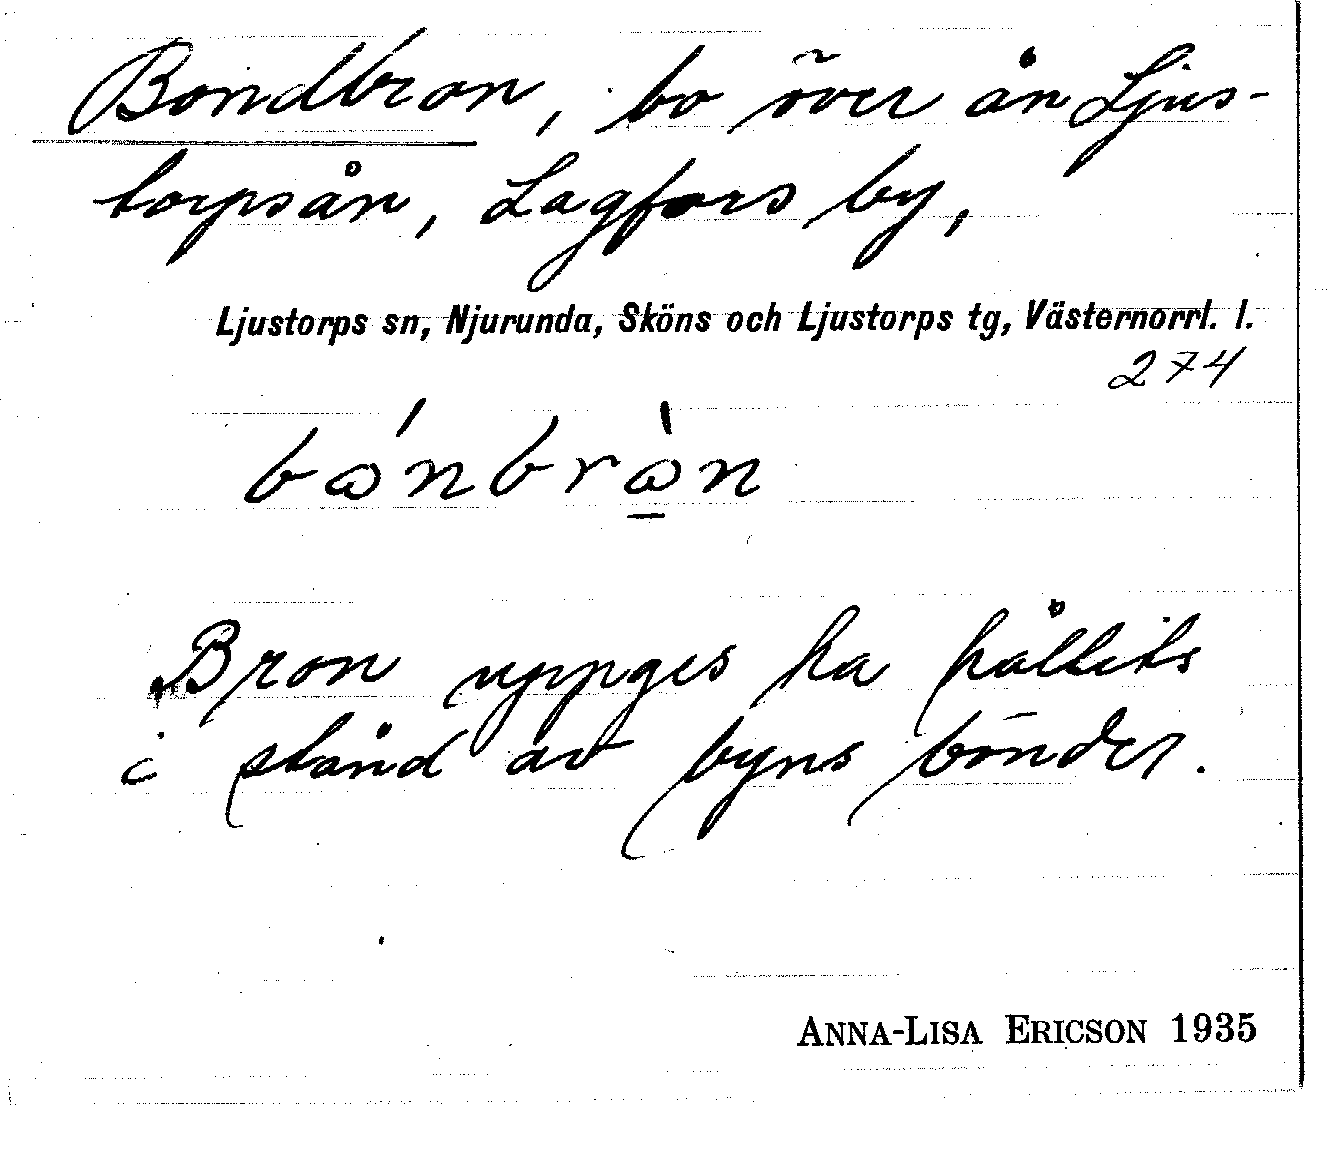 Bondbron, bo över ån Ljus-
torpsån, Lagfors by,
Ljustorps sn, Njurunda, Sköns och Ljustorps tg, Västernorrl. l.
274
bánbràn
Bron uppges ha hållits
i stånd av byns bönder.
ANNA-LISA ERICSON 1935